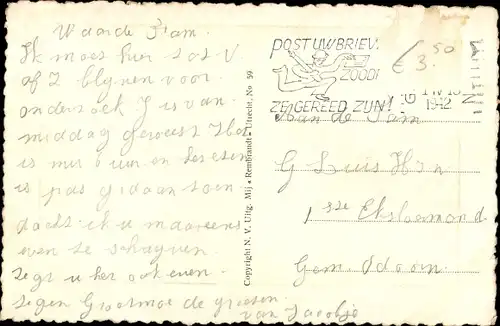 Waarde Fam.
Ik moet hier tot V.
of Z blijven voor
onderzoek J is van
middag geweest Het
is nu 6 uur en het eten
is pas gedaan toen
dacht ik u maar eens
even te schrijven.
Zegt u het ook even
tegen Grootmoe de groeten
van Jacobje
Copyright N. V. Uitg. Mij « Rembrandt » Utrecht, No 59
POST UW BRIEV.
ZOODR
ZE GEREED ZIJN!
1942
€ 3.50
Aan de Fam
G
1ste Exloermond
Gem. Odoorn